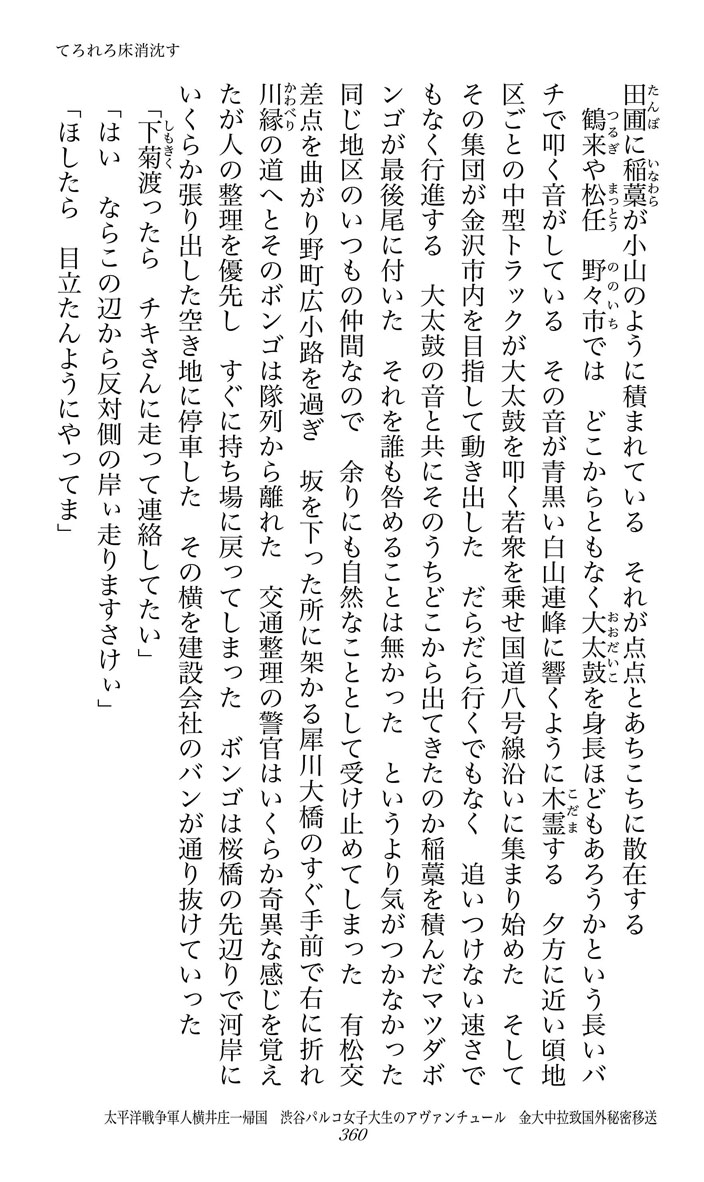 てろれろ床消沈す
田圃に稲藁が小山のように積まれている　それが点点とあちこちに散在する
たんぼ
いなわら
鶴来や松任　野々市では　どこからともなく大太鼓を身長ほどもあろうかという長いバ
つるぎ
まっとう
ののいち
おおだいこ
チで叩く音がしている　その音が青黒い白山連峰に響くように木霊する　夕方に近い頃地
こだま
区ごとの中型トラックが大太鼓を叩く若衆を乗せ国道八号線沿いに集まり始めた　そして
その集団が金沢市内を目指して動き出した　だらだら行くでもなく　追いつけない速さで
もなく行進する　大太鼓の音と共にそのうちどこから出てきたのか稲藁を積んだマツダボ
ンゴが最後尾に付いた　それを誰も咎めることは無かった　というより気がつかなかった
同じ地区のいつもの仲間なので　余りにも自然なこととして受け止めてしまった　有松交
差点を曲がり野町広小路を過ぎ　坂を下った所に架かる犀川大橋のすぐ手前で右に折れ
川縁の道へとそのボンゴは隊列から離れた　交通整理の警官はいくらか奇異な感じを覚え
かわべり
たが人の整理を優先し　すぐに持ち場に戻ってしまった　ボンゴは桜橋の先辺りで河岸に
いくらか張り出した空き地に停車した　その横を建設会社のバンが通り抜けていった
「下菊渡ったら　チキさんに走って連絡してたい」
しもきく
「はい　ならこの辺から反対側の岸ぃ走りますさけぃ」
「ほしたら　目立たんようにやってま」
太平洋戦争軍人横井庄一帰国　渋谷パルコ女子大生のアヴァンチュール　金大中拉致国外秘密移送
360